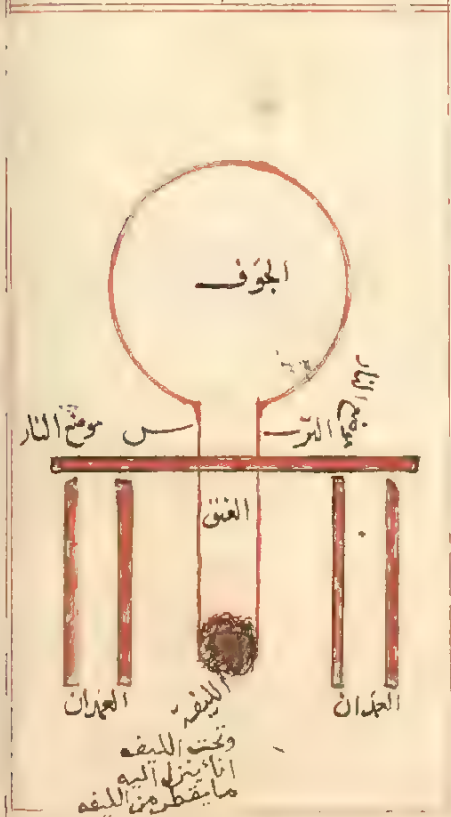 المجوف
موضع النار
الترس
موضع النار
العنق
العمدان
العمدان
الليفة
وتحت الليفه
اناء ينزل اليه
ما يقطر من الليفه